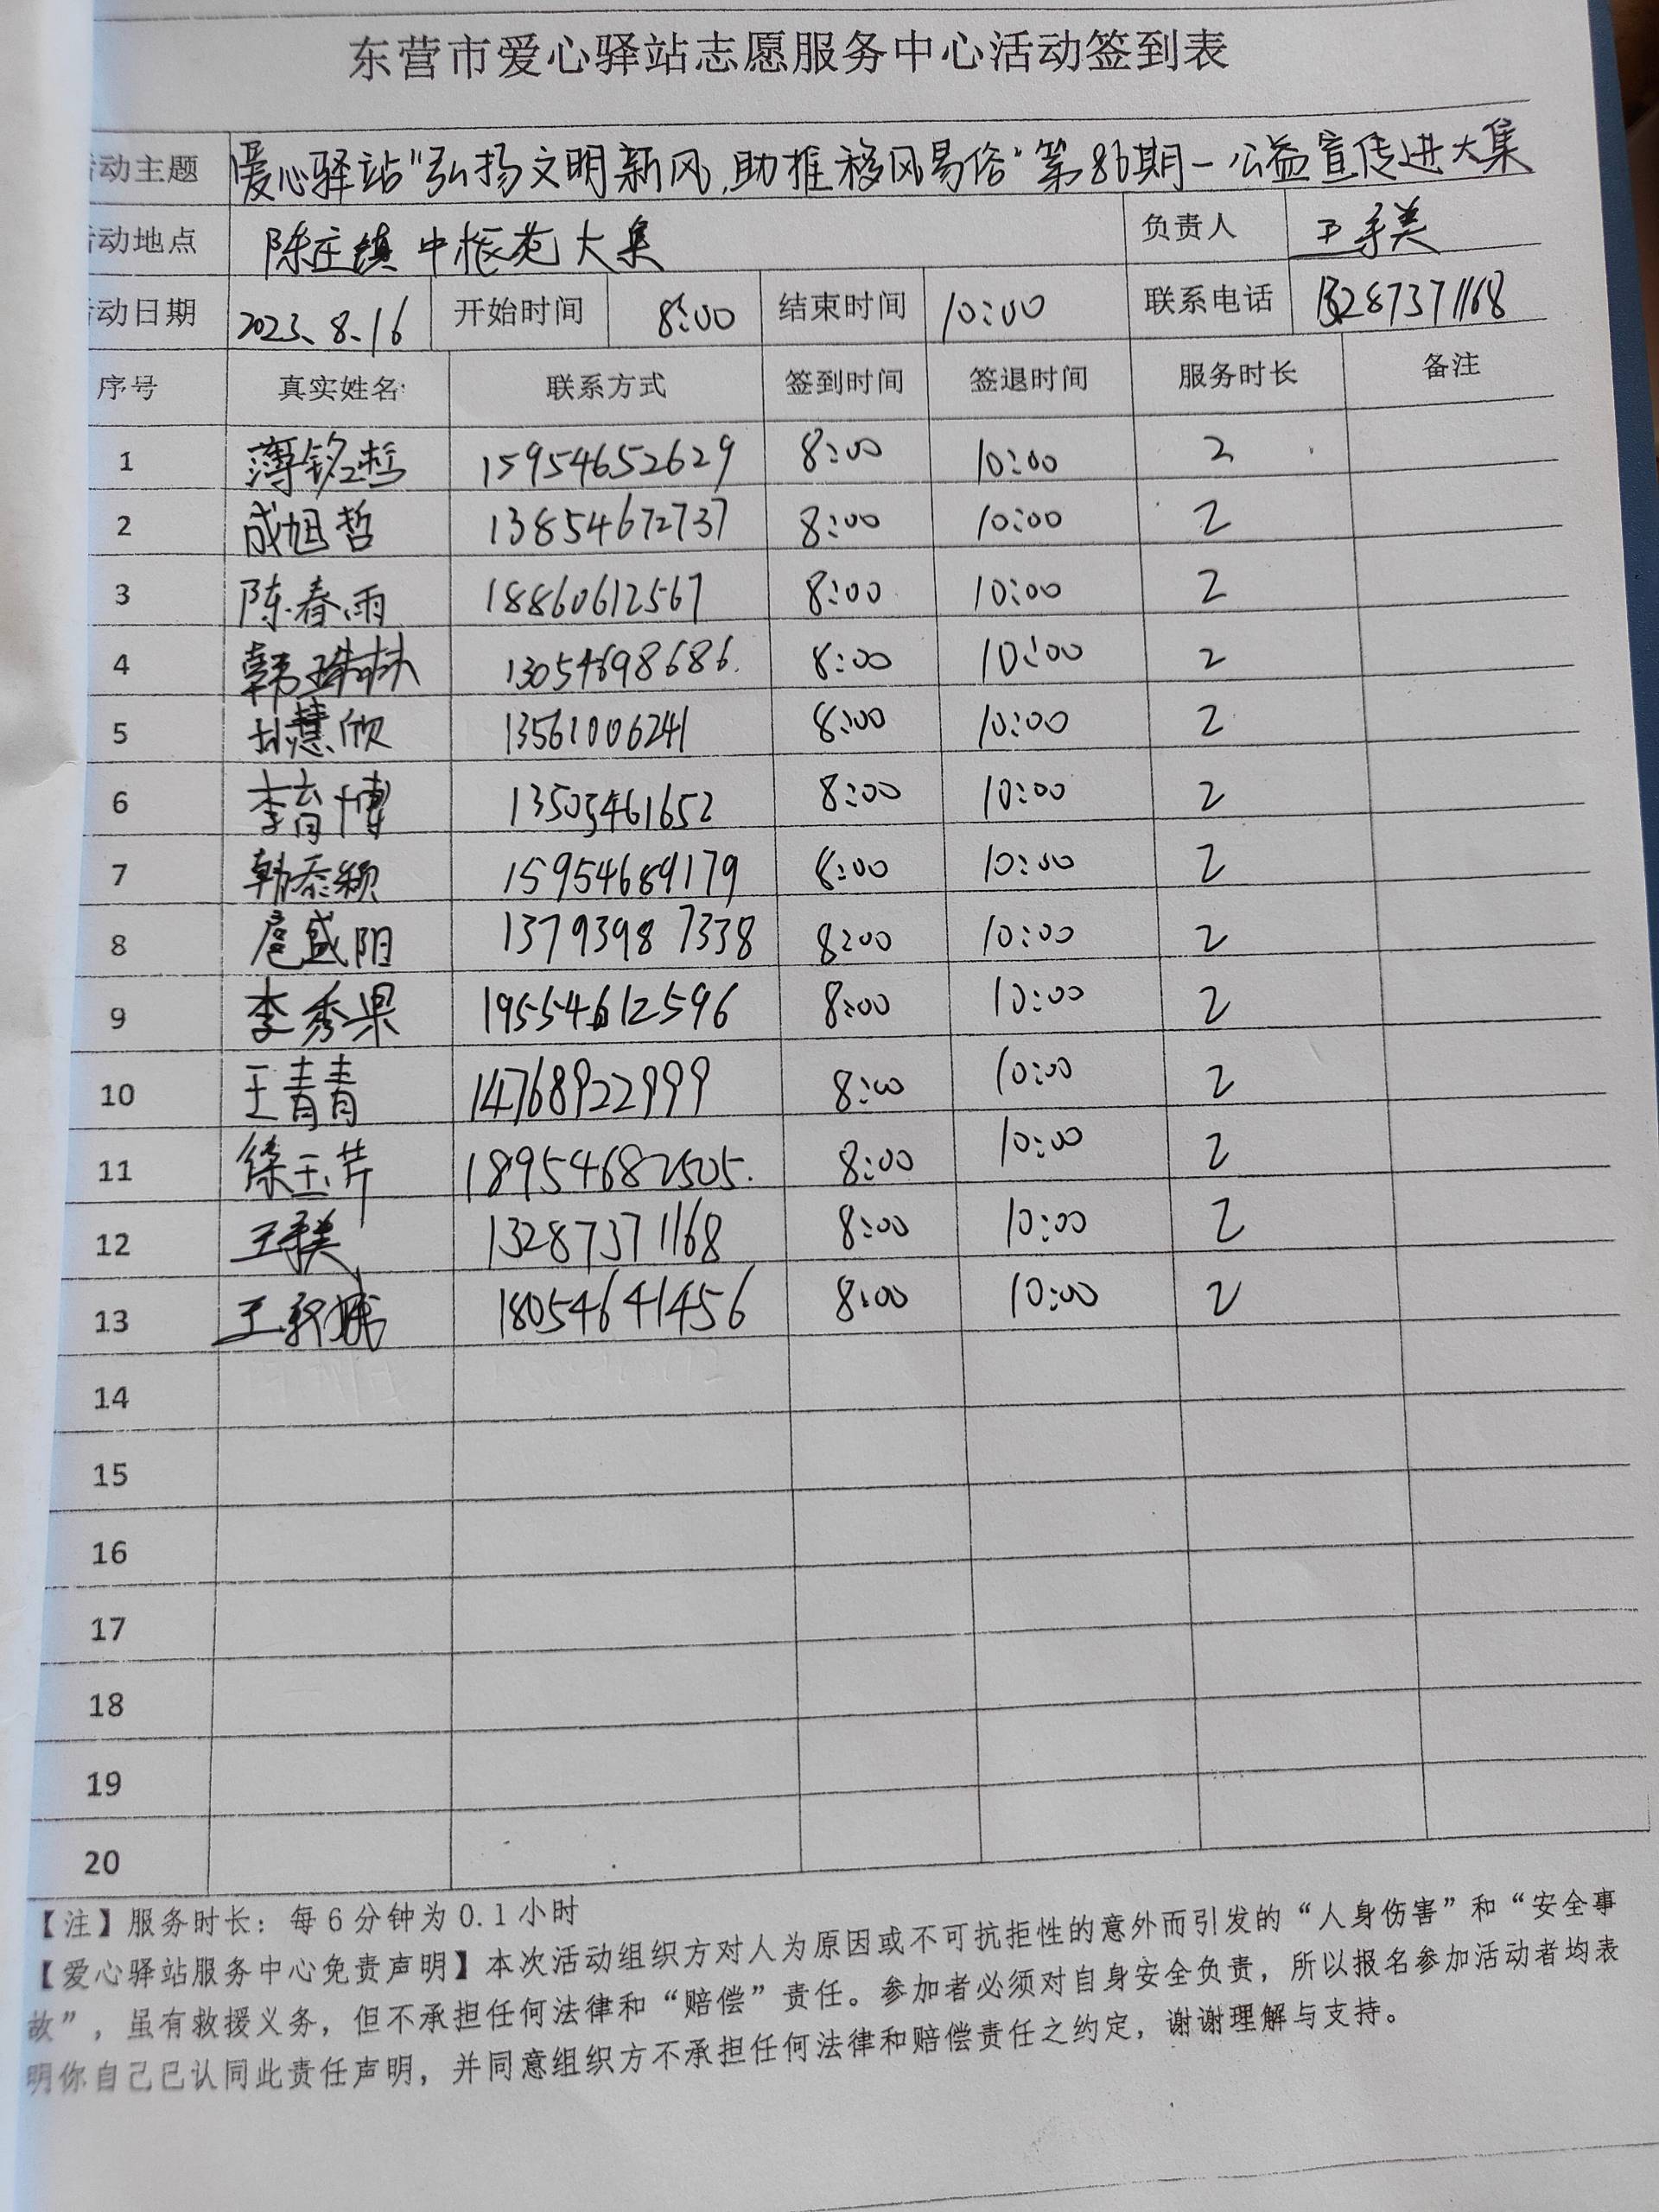 东营市爱心驿站志愿服务中心活动签到表
动主题 爱心驿站“弘扬文明新风,助推移风易俗”第86期—公益宣传进大集
动地点 陈庄镇中 大集 负责人 王 美
动日期 2023.8.16 开始时间 8:00 结束时间 10:00 联系电话 13287371168
序号 真实姓名 联系方式 签到时间 签退时间 服务时长 备注
1 薄铭哲 15954652629 8:00 10:00 2
2 成旭哲 13854672737 8:00 10:00 2
3 陈春雨 18860612567 8:00 10:00 2
4 韩 林 13054698686 8:00 10:00 2
5 慧欣 13561006241 8:00 10:00 2
6 李育博 13505461652 8:00 10:00 2
7 韩 颖 15954689179 8:00 10:00 2
8 扈盛阳 13793987338 8:00 10:00 2
9 李秀果 19554612596 8:00 10:00 2
10 王青青 14768922999 8:00 10:00 2
11 徐玉芹 18954682505. 8:00 10:00 2
12 王 美 13287371168 8:00 10:00 2
13 王 18054641456 8:00 10:00 2
14
15
16
17
18
19
20
【注】服务时长：每6分钟为0.1小时
【爱心驿站服务中心免责声明】本次活动组织方对人为原因或不可抗拒性的意外而引发的“人身伤害”和“安全事
故”，虽有救援义务，但不承担任何法律和“赔偿”责任。参加者必须对自身安全负责，所以报名参加活动者均表
明你自己已认同此责任声明，并同意组织方不承担任何法律和赔偿责任之约定，谢谢理解与支持。